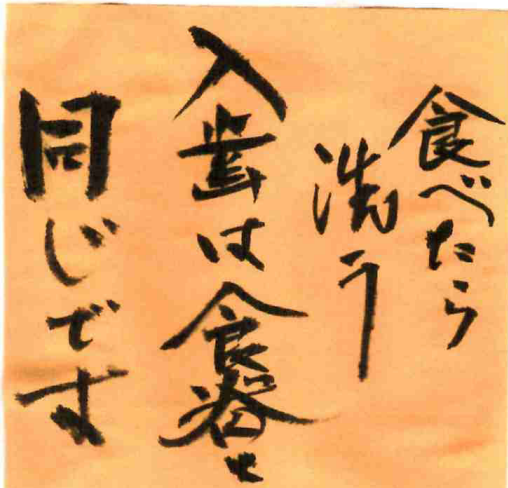 食べたら
洗う
入歯は食器と
同じです